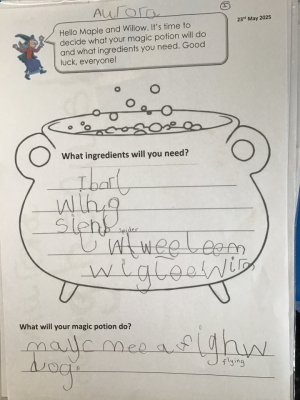 Aurora
23rd May 2025
Hello Maple and Willow. It's time to
decide what your magic potion will do
and what ingredients you need. Good
luck, everyone!
What ingredients will you need?
1 bat
wing
slent
spider
wigloe wirm
What will your magic potion do?
mayc mee a flighw
flying
dog.